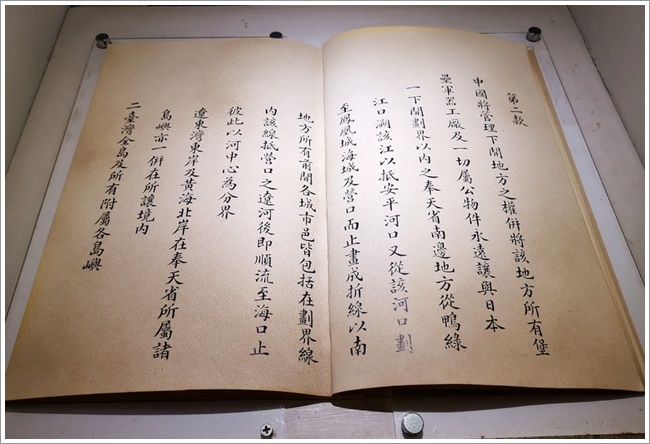 第二款
中國將管理下開地方之權併將該地方所有堡
壘軍器工廠及一切屬公物件永遠讓與日本
一下開劃界以內之奉天省南邊地方從鴨綠
江口溯該江以抵安平河口又從該河口劃
至鳳凰城海城及營口而止畫成折線以南
地方所有前開各城市邑皆包括在劃界線
內該線抵營口之遼河後即順流至海口止
彼此以河中心為分界
遼東灣東岸及黃海北岸在奉天省所屬諸
島嶼亦一併在所讓境內
二臺灣全島及所有附屬各島嶼